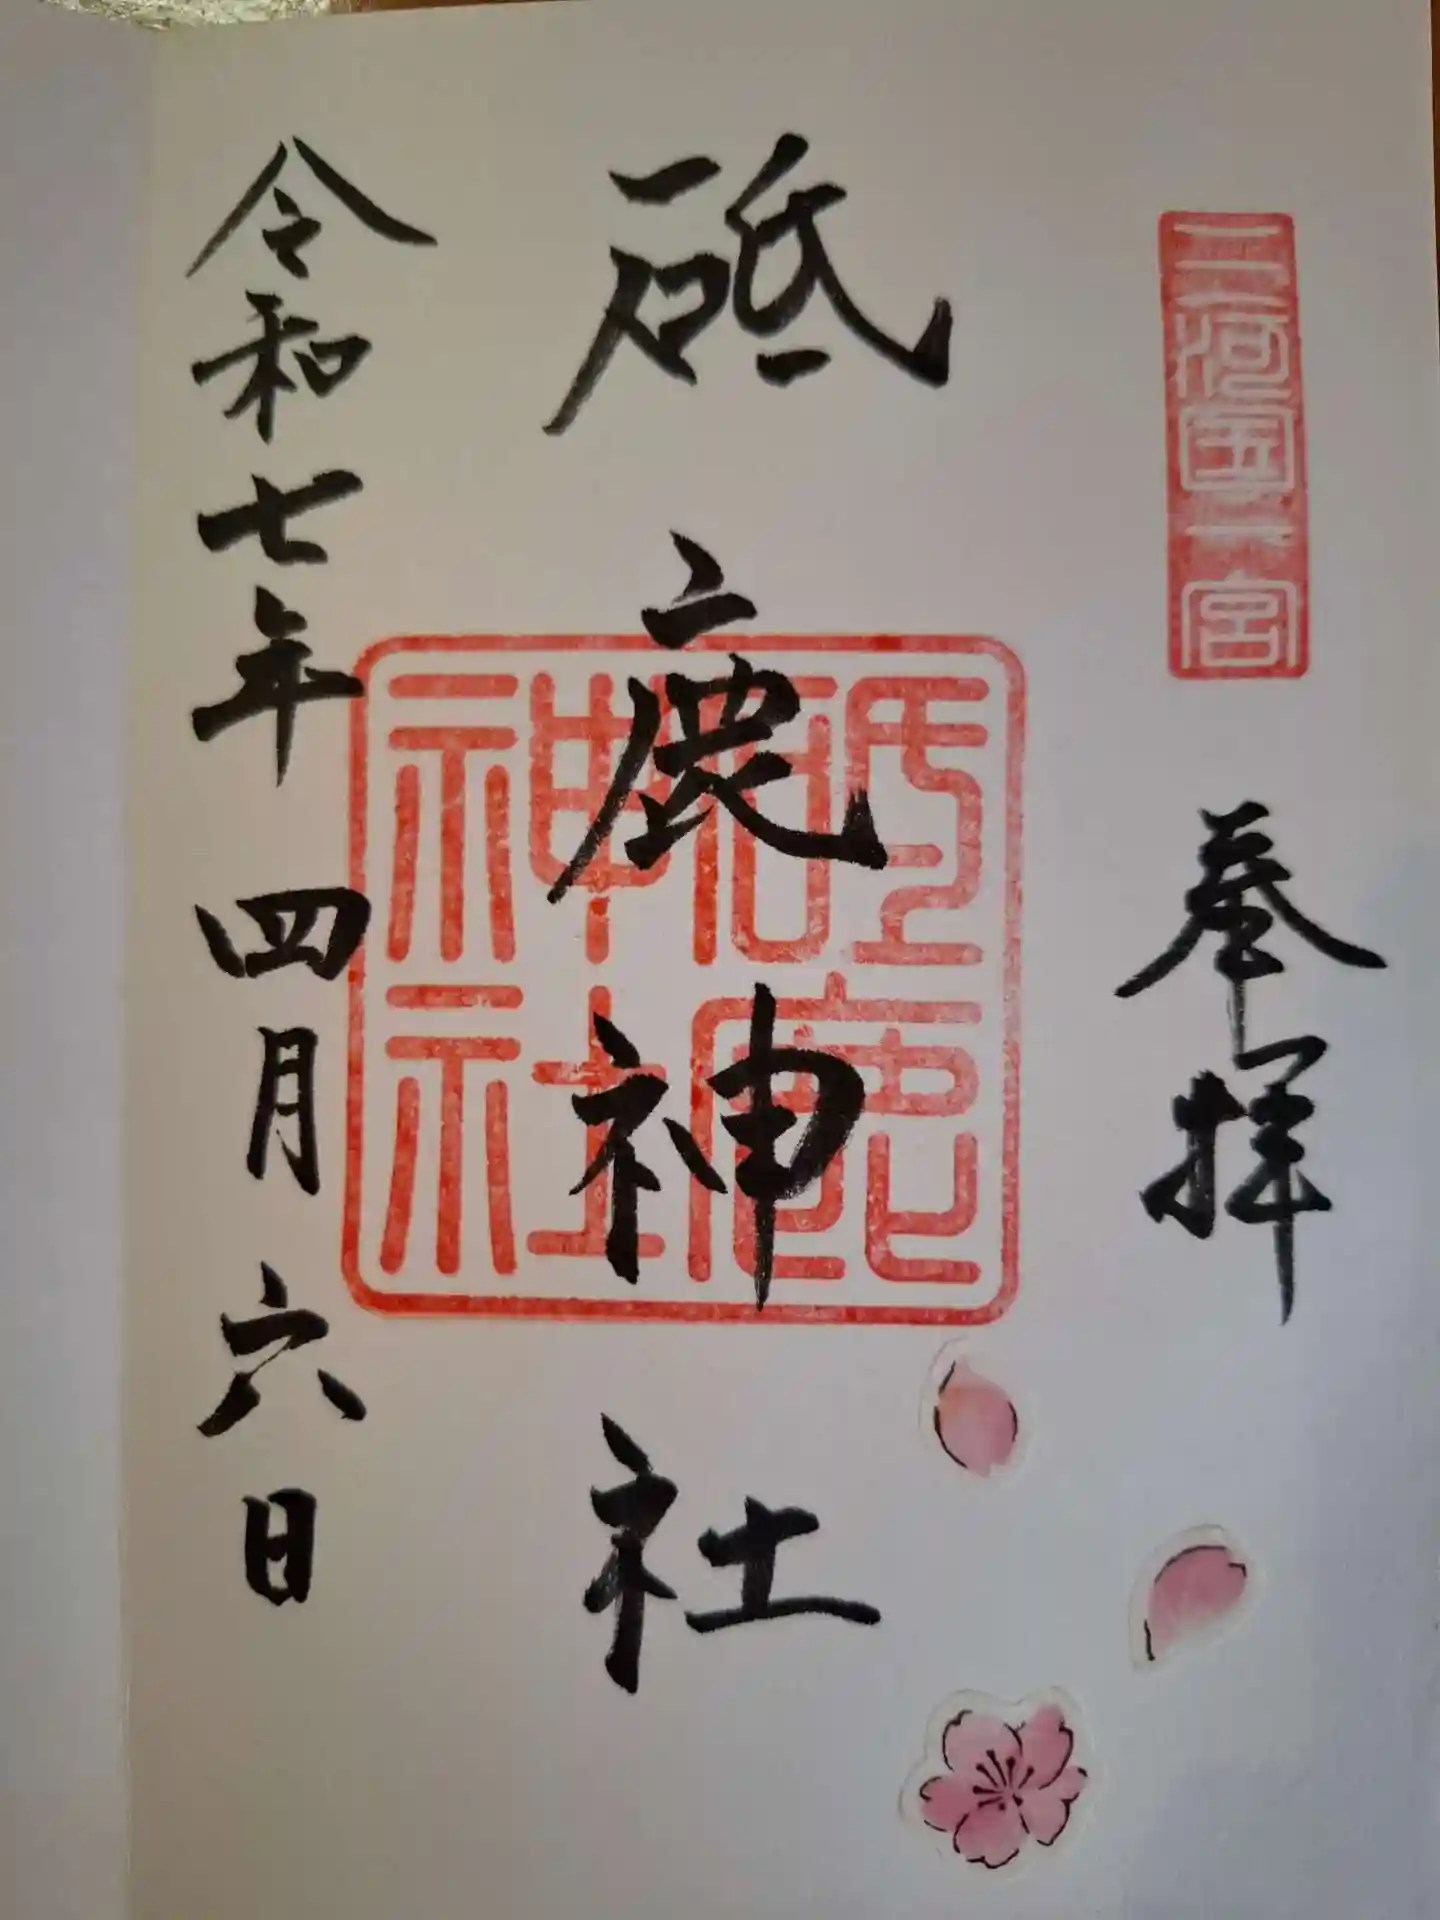 三河国一宮
奉拝
砥鹿神社
砥鹿神社
令和七年四月六日